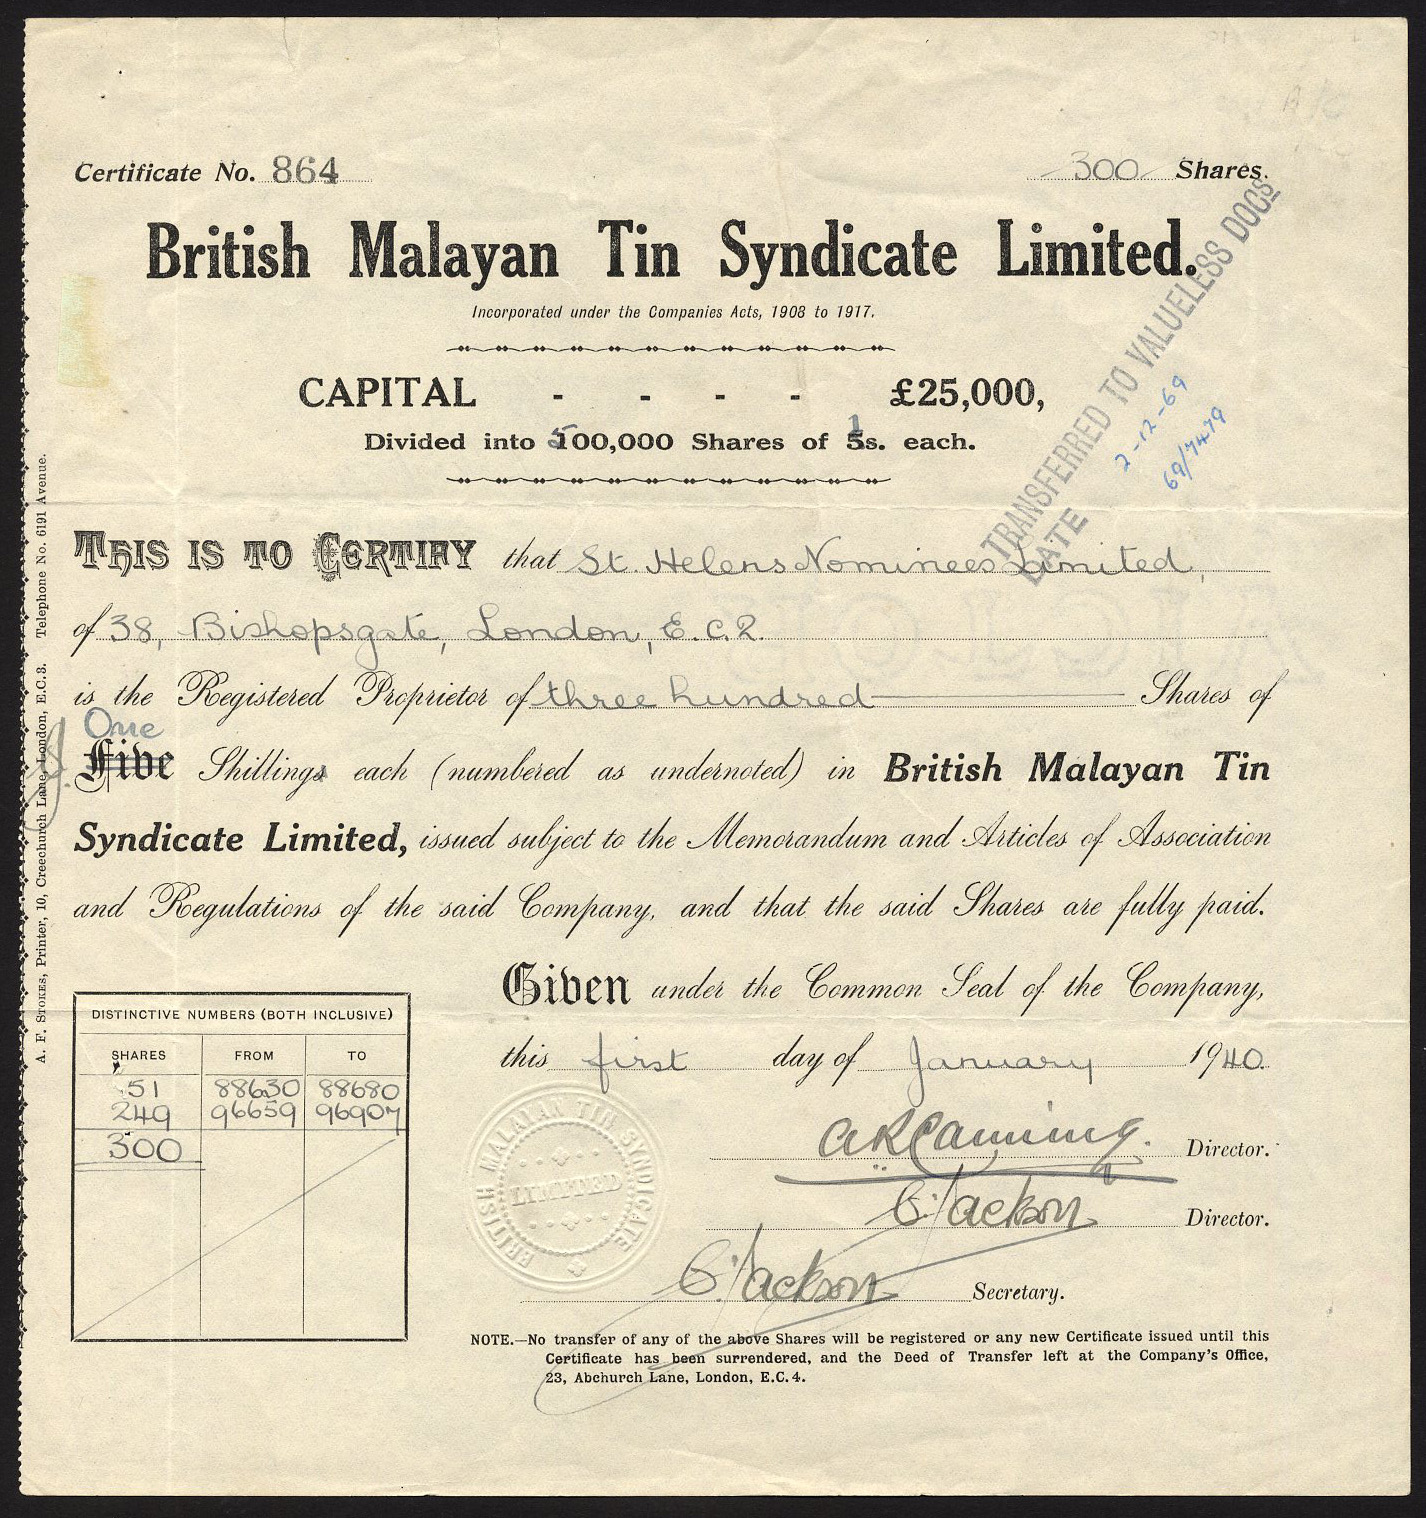 Certificate No. 864
300 Shares.
British Malayan Tin Syndicate Limited.
Incorporated under the Companies Acts, 1908 to 1917.
CAPITAL - - - - £25,000,
Divided into 500,000 Shares of 1s. each.
TRANSFERRED TO VALUELESS DOCS
DATE 2-12-69
69/7479
THIS IS TO CERTIFY that St. Helens Nominees Limited,
of 38, Bishopsgate, London, E.C.2.
is the Registered Proprietor of three hundred Shares of
One
Five Shillings each (numbered as undernoted) in British Malayan Tin
Syndicate Limited, issued subject to the Memorandum and Articles of Association
and Regulations of the said Company, and that the said Shares are fully paid.
Given under the Common Seal of the Company,
this first day of January 1940.
DISTINCTIVE NUMBERS (BOTH INCLUSIVE)
SHARES FROM TO
51 88630 88680
249 96659 96907
300
BRITISH MALAYAN TIN SYNDICATE
LIMITED
Director.
C. Jackson Director.
C. Jackson Secretary.
NOTE.—No transfer of any of the above Shares will be registered or any new Certificate issued until this
Certificate has been surrendered, and the Deed of Transfer left at the Company's Office,
23, Abchurch Lane, London, E.C.4.
A. F. STOKES, Printer, 10, Creechurch Lane, London, E.C.3. Telephone No. 6191 Avenue.